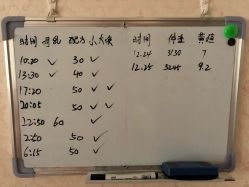 时间 母乳 配方 小大便
10:20 ✓ 30 ✓
13:30 ✓ 40 ✓
17:20 50 ✓ ✓
20:05 50 ✓ ✓
12:50 60 ✓
2:50 50 ✓
6:15 50 ✓
时间 体重 黄疸
12.24 3130 7
12.25 3245 9.2